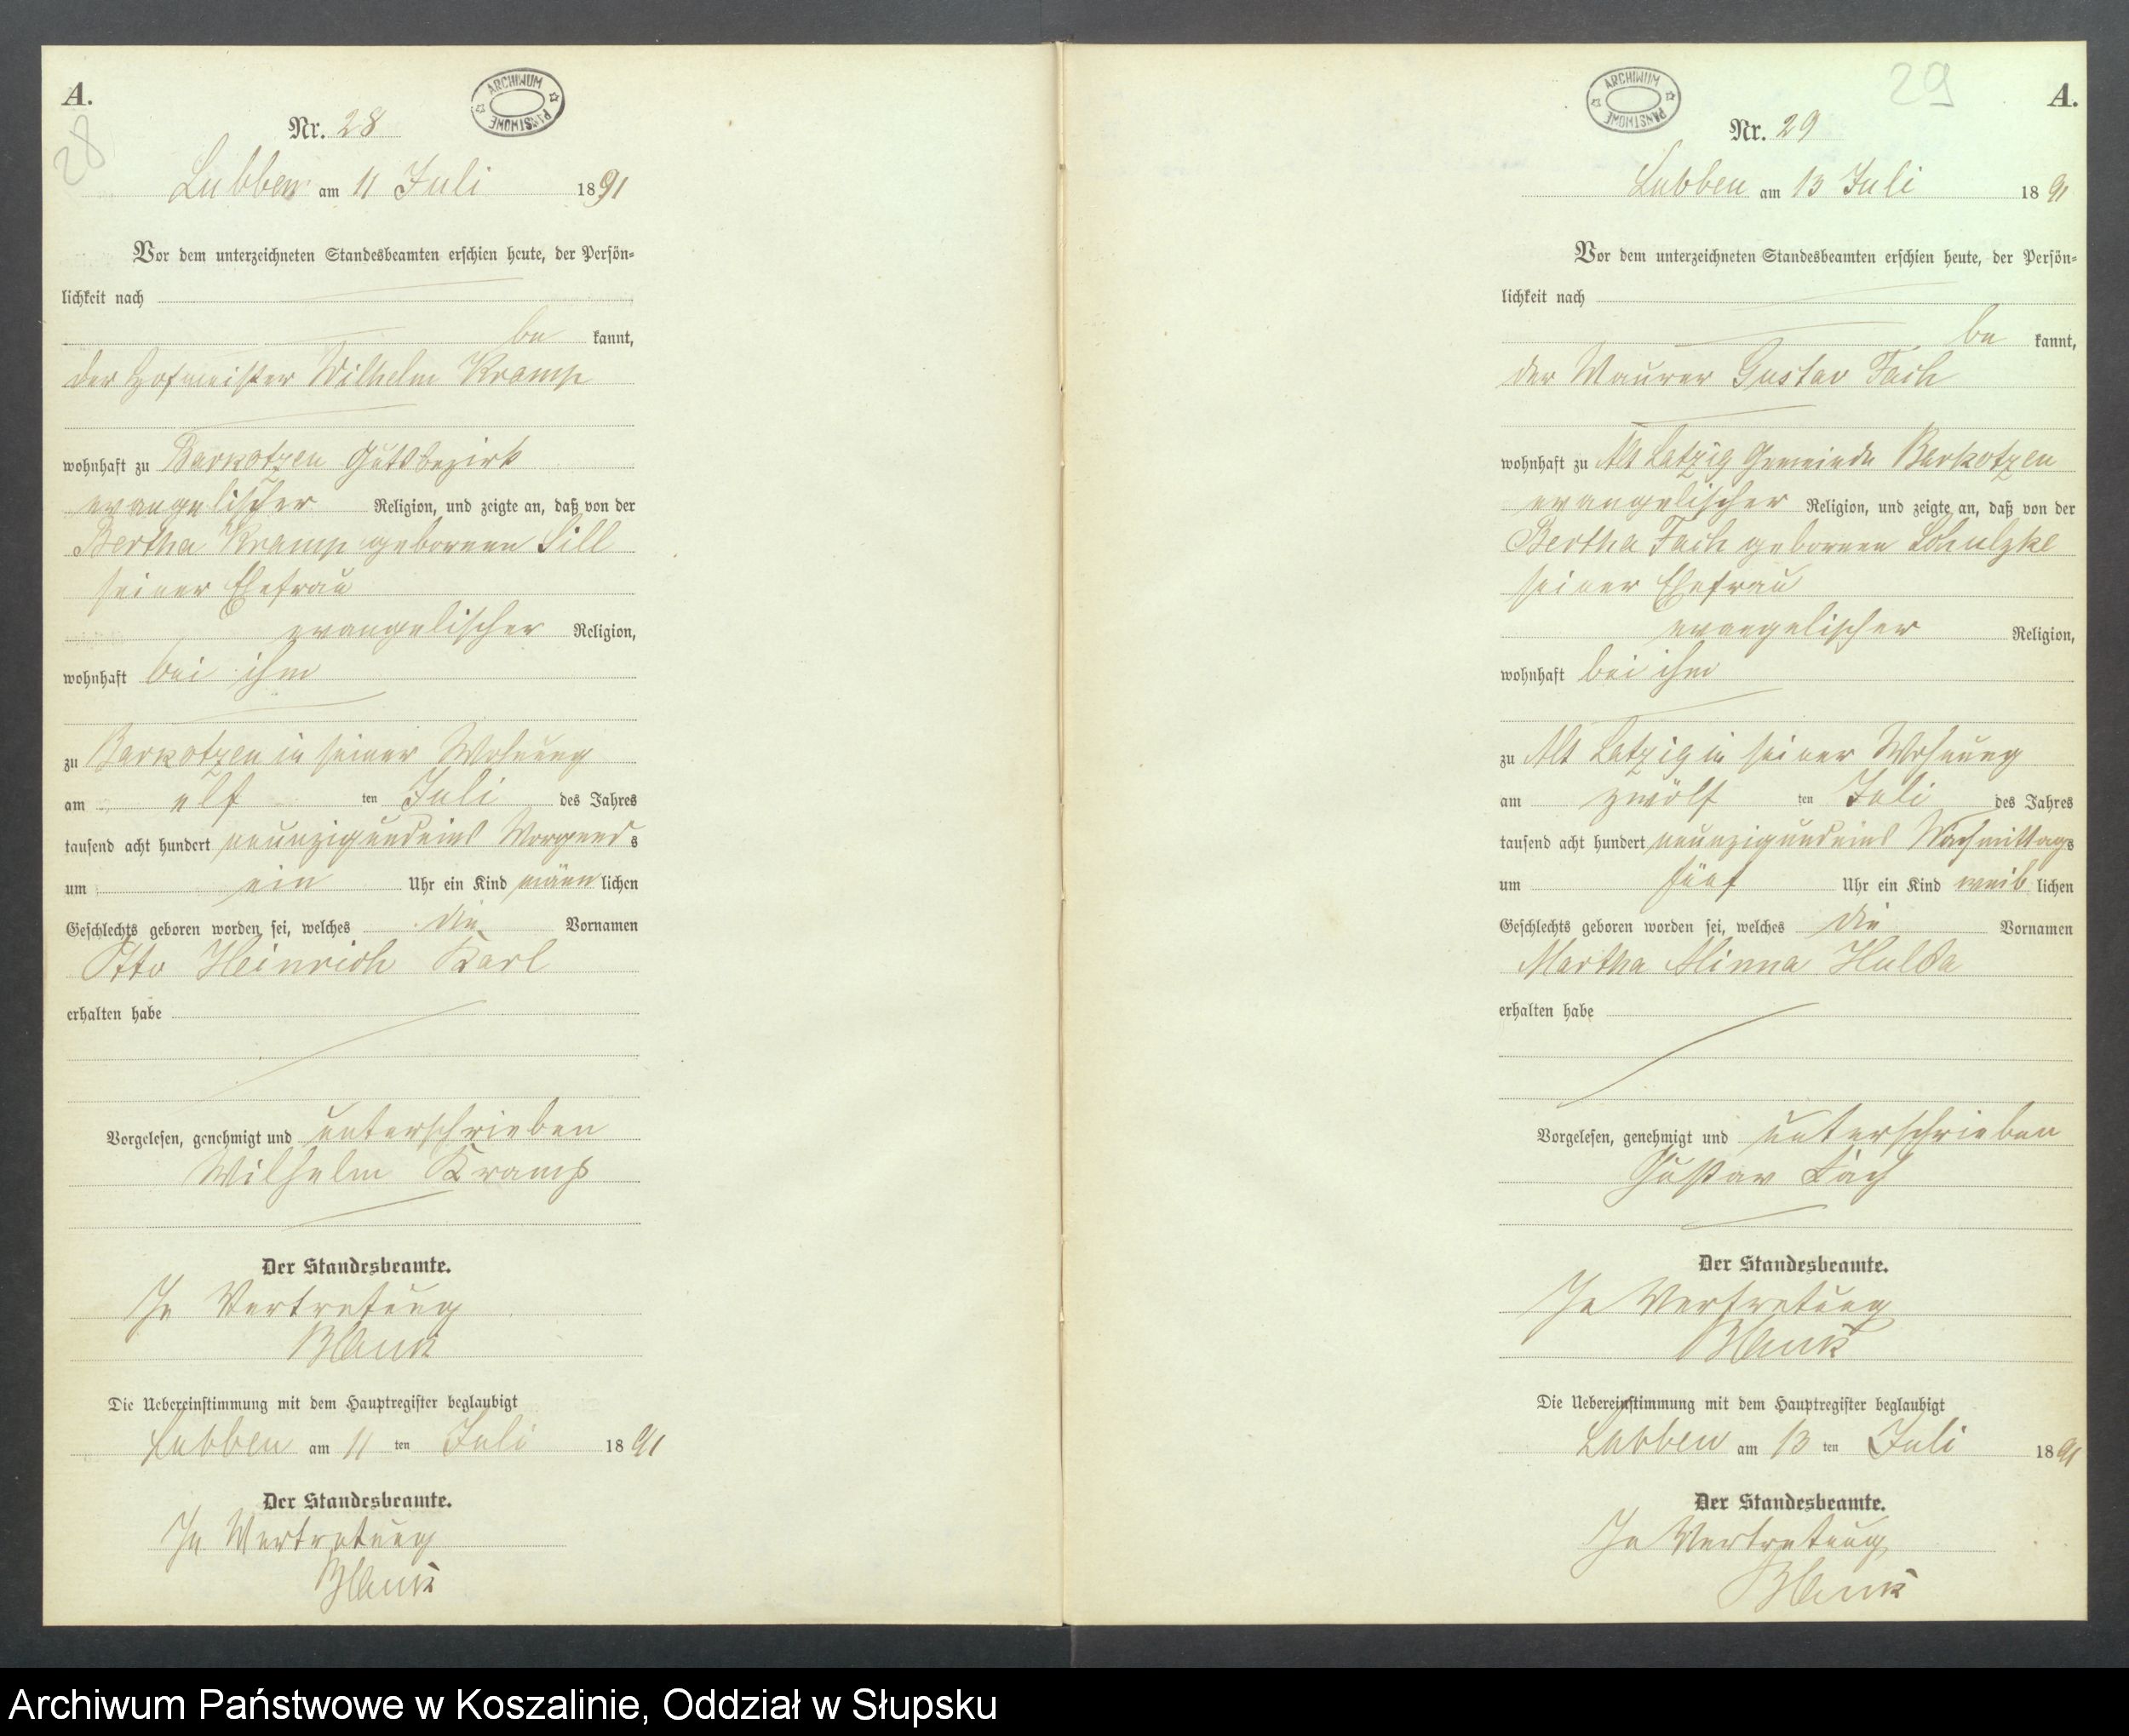 A.
28
ARCHIWUM PAŃSTWOWE
Nr. 28
Lubben am 11 Juli 1891
Vor dem unterzeichneten Standesbeamten erschien heute, der Persön-
lichkeit nach
be kannt,
der Hofmeister Wilhelm Kramp
wohnhaft zu Barkotzen Gutsbezirk
evangelischer Religion, und zeigte an, daß von der
Bertha Kramp geborenen Sill
seiner Ehefrau
evangelischer Religion,
wohnhaft bei ihm
zu Barkotzen in seiner Wohnung
am elf ten Juli des Jahres
tausend acht hundert neunzigundeins Morgends
um ein Uhr ein Kind männlichen
Geschlechts geboren worden sei, welches die Vornamen
Otto Heinrich Karl
erhalten habe
Vorgelesen, genehmigt und unterschrieben
Wilhelm Kramp
Der Standesbeamte.
In Vertretung
Blank
Die Uebereinstimmung mit dem Hauptregister beglaubigt
Lubben am 11 ten Juli 1891
Der Standesbeamte.
In Vertretung
Blank
ARCHIWUM PAŃSTWOWE
29
A.
Nr. 29
Lubben am 13 Juli 1891
Vor dem unterzeichneten Standesbeamten erschien heute, der Persön-
lichkeit nach
be kannt,
der Maurer Gustav Fach
wohnhaft zu Alt Latzig Gemeinde Barkotzen
evangelischer Religion, und zeigte an, daß von der
Bertha Fach geborenen Schulzke
seiner Ehefrau
evangelischer Religion,
wohnhaft bei ihm
zu Alt Latzig in seiner Wohnung
am zwölf ten Juli des Jahres
tausend acht hundert neunzigundeins Nachmittags
um fünf Uhr ein Kind weiblichen
Geschlechts geboren worden sei, welches die Vornamen
Martha Minna Hulda
erhalten habe
Vorgelesen, genehmigt und unterschrieben
Gustav Fach
Der Standesbeamte.
In Vertretung
Blank
Die Uebereinstimmung mit dem Hauptregister beglaubigt
Lubben am 13 ten Juli 1891
Der Standesbeamte.
In Vertretung
Blank
Archiwum Państwowe w Koszalinie, Oddział w Słupsku